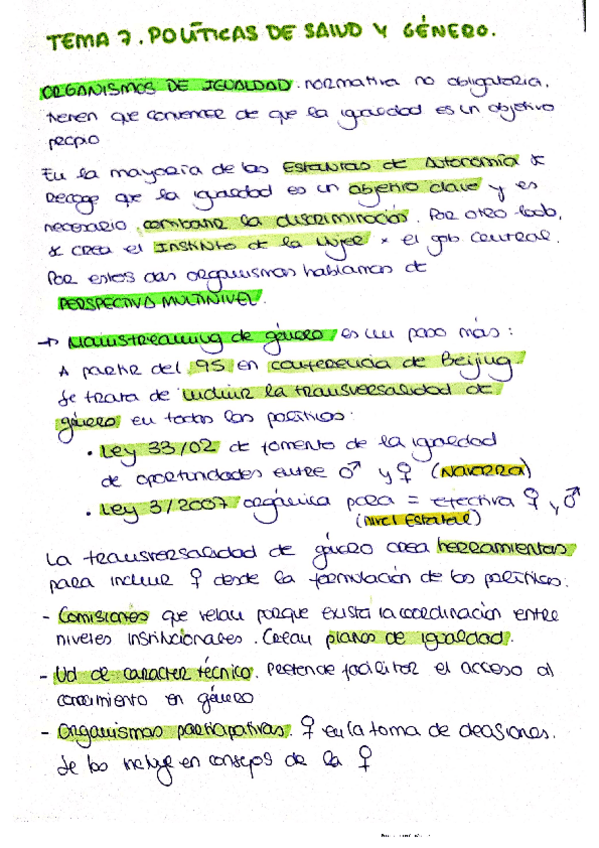 TEMA 7. POLÍTICAS DE SALUD Y GÉNERO.
ORGANISMOS DE IGUALDAD. normativa no obligatoria.
tienen que convencer de que la igualdad es un objetivo
propio
En la mayoría de los Estatutos de Autonomía se
recoge que la igualdad es un objetivo clave y es
necesario combatir la discriminación. Por otro lado,
se crea el INSTITUTO de la Mujer x el gob central.
Por estos dos organismos hablamos de
PERSPECTIVA MULTINIVEL.
→ Mainstreaming de género es un paso más:
A partir del 95 en conferencia de Beijing.
Se trata de incluir la transversalidad de
género en todas las políticas:
• Ley 33/02 de fomento de la igualdad
de oportunidades entre ♂ y ♀ (NAVARRA)
• Ley 3/2007 orgánica para = efectiva ♀ y ♂
(Nivel Estatal)
La transversalidad de género crea herramientas
para incluir ♀ desde la formulación de las políticas:
- Comisiones que velan porque exista la coordinación entre
niveles institucionales. Crean planes de igualdad.
- Ud de caracter técnico. Pretende facilitar el acceso al
conocimiento en género
- Organismos participativos. ♀ en la toma de decisiones.
Se las incluye en consejos de la ♀